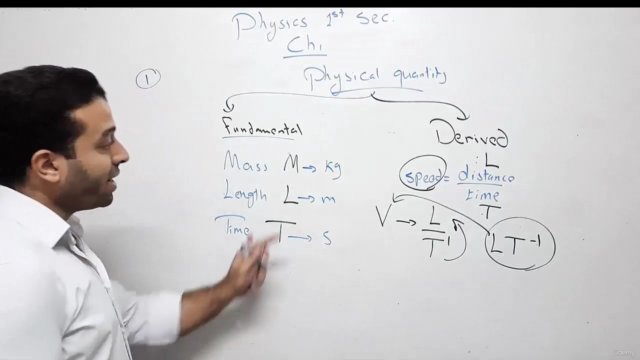 Physics 1st sec.
Ch1
①
Physical quantity
Fundamental
Mass M → kg
Length L → m
Time T → s
Derived
L
speed = distance / time
T
V → L / T¹
L T⁻¹